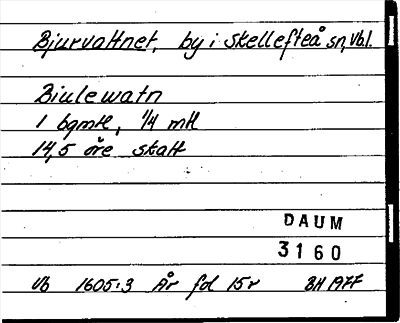 Bjurvattnet, by i Skellefteå sn, Vb.l.
Biulewatn
1 bgmtl, 1/4 mtl
14,5 öre skatt
DAUM
3160
Vb 1605:3 År fol 15v BH 1977